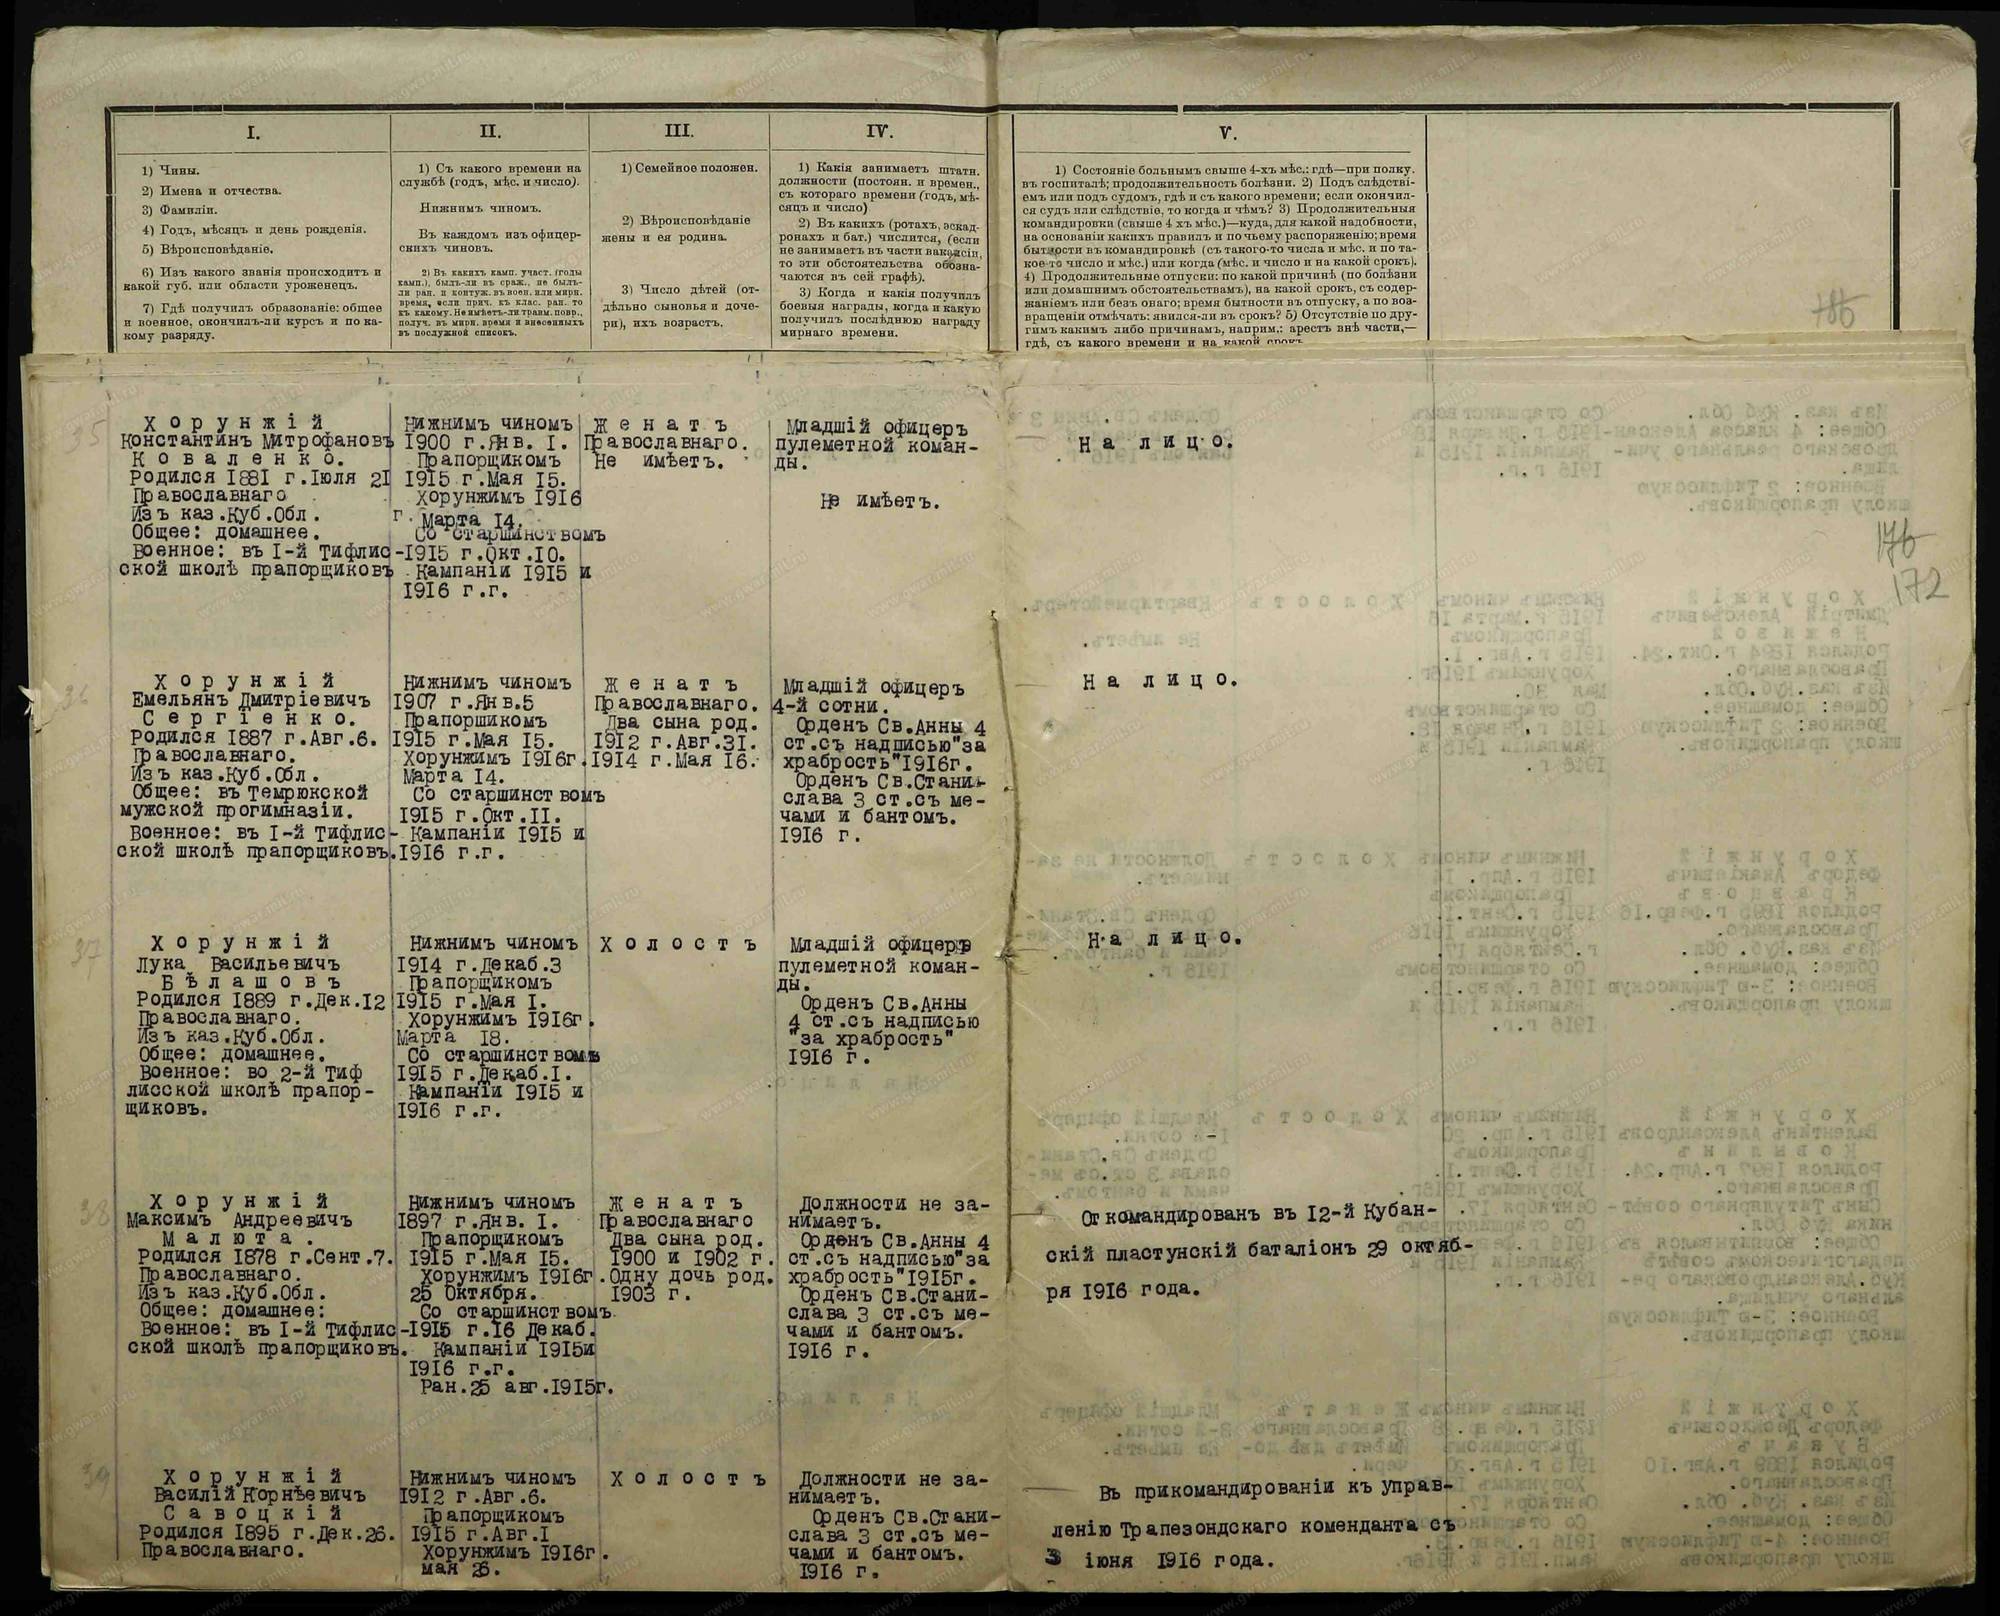 I.
1) Чины.
2) Имена и отчества.
3) Фамиліи.
4) Годъ, мѣсяцъ и день рожденія.
5) Вѣроисповѣданіе.
6) Изъ какого званія происходитъ и
какой губ. или области уроженецъ.
7) Гдѣ получилъ образованіе: общее
и военное, окончилъ-ли курсъ и по ка-
кому разряду.
II.
1) Съ какого времени на
службѣ (годъ, мѣс. и число).
Нижнимъ чиномъ.
Въ каждомъ изъ офицер-
скихъ чиновъ.
2) Въ какихъ камп. участ. (годы
камп.), былъ-ли въ сраж., не былъ-
ли ран. и контуж. въ воен. или мирн.
время, если прич. къ клас. ран. то
къ какому. Не имѣетъ-ли травм. повр.,
получ. въ мирн. время и внесенныхъ
въ послужной списокъ.
III.
1) Семейное положен.
2) Вѣроисповѣданіе
жены и ея родина.
3) Число дѣтей (от-
дѣльно сыновья и доче-
ри), ихъ возрастъ.
IV.
1) Какія занимаетъ штатн.
должности (постоян. и времен.,
съ котораго времени (годъ, мѣ-
сяцъ и число)
2) Въ какихъ (ротахъ, эскад-
ронахъ и бат.) числится, (если
не занимаетъ въ части вакансіи,
то эти обстоятельства обозна-
чаются въ сей графѣ).
3) Когда и какія получилъ
боевыя награды, когда и какую
получилъ послѣднюю награду
мирнаго времени.
V.
1) Состояніе больнымъ свыше 4-хъ мѣс.: гдѣ—при полку.
въ госпиталѣ; продолжительность болѣзни. 2) Подъ слѣдстві-
емъ или подъ судомъ, гдѣ и съ какого времени; если окончил-
ся судъ или слѣдствіе, то когда и чѣмъ? 3) Продолжительныя
командировки (свыше 4 хъ мѣс.)—куда, для какой надобности,
на основаніи какихъ правилъ и по чьему распоряженію; время
бытности въ командировкѣ (съ такого-то числа и мѣс. и по та-
кое-то число и мѣс.) или когда (мѣс. и число и на какой срокъ).
4) Продолжительные отпуски: по какой причинѣ (по болѣзни
или домашнимъ обстоятельствамъ), на какой срокъ, съ содер-
жаніемъ или безъ онаго; время бытности въ отпуску, а по воз-
вращеніи отмѣчать: явился-ли въ срокъ? 5) Отсутствіе по дру-
гимъ какимъ либо причинамъ, наприм.: арестъ внѣ части,—
гдѣ, съ какого времени и на какой срокъ
176
172
35
Хорунжій
Константинъ Митрофановъ
Коваленко.
Родился 1881 г.Іюля 21
Православнаго
Изъ каз.Куб.Обл.
Общее: домашнее.
Военное: въ I-й Тифлис-
ской школѣ прапорщиковъ
Нижнимъ чиномъ
1900 г.Янв. I.
Прапорщикомъ
1915 г.Мая 15.
Хорунжимъ 1916
г. Марта 14.
Со старшинствомъ
1915 г.Окт.10.
Кампаніи 1915 и
1916 г.г.
Женатъ
Православнаго.
Не имѣетъ.
Младшій офицеръ
пулеметной коман-
ды.
Не имѣетъ.
На лицо.
36
Хорунжій
Емельянъ Дмитріевичъ
Сергіенко.
Родился 1887 г.Авг.6.
Православнаго.
Изъ каз.Куб.Обл.
Общее: въ Темрюкской
мужской прогимназіи.
Военное: въ I-й Тифлис-
ской школѣ прапорщиковъ.
Нижнимъ чиномъ
1907 г.Янв.5
Прапоршикомъ
1915 г.Мая 15.
Хорунжимъ 1916г.
Марта 14.
Со старшинствомъ
1915 г.Окт.II.
Кампаніи 1915 и
1916 г.г.
Женатъ
Православнаго.
Два сына род.
1912 г.Авг.31.
1914 г.Мая 16.
Младшій офицеръ
4-й сотни.
Орденъ Св.Анны 4
ст.съ надписью"за
храбрость"1916г.
Орденъ Св.Стани-
слава 3 ст.съ ме-
чами и бантомъ.
1916 г.
На лицо.
37
Хорунжій
Лука Васильевичъ
Бѣлашовъ
Родился 1889 г.Дек.12
Православнаго.
Изъ каз.Куб.Обл.
Общее: домашнее.
Военное: во 2-й Тиф
лисской школѣ прапор-
щиковъ.
Нижнимъ чиномъ
1914 г.Декаб.3
Прапорщикомъ
1915 г.Мая I.
Хорунжимъ 1916г.
Марта 18.
Со старшинствомъ
1915 г.Декаб.I.
Кампаніи 1915 и
1916 г.г.
Холостъ
Младшій офицеръ
пулеметной коман-
ды.
Орденъ Св.Анны
4 ст.съ надписью
"за храбрость"
1916 г.
На лицо.
38
Хорунжій
Максимъ Андреевичъ
Малюта.
Родился 1878 г.Сент.7.
Православнаго.
Изъ каз.Куб.Обл.
Общее: домашнее:
Военное: въ I-й Тифлис-
ской школѣ прапорщиковъ.
Нижнимъ чиномъ
1897 г.Янв. I.
Прапорщикомъ
1915 г.Мая 15.
Хорунжимъ 1916г.
25 Октября.
Со старшинствомъ.
1915 г.16 Декаб.
Кампаніи 1915и
1916 г.г.
Ран.25 авг.1915г.
Женатъ
Православнаго
Два сына род.
1900 и 1902 г.
Одну дочь род.
1903 г.
Должности не за-
нимаетъ.
Орденъ Св.Анны 4
ст.съ надписью"за
храбрость"1915г.
Орденъ Св.Стани-
слава 3 ст.съ ме-
чами и бантомъ.
1916 г.
Откомандированъ въ 12-й Кубан-
скій пластунскій баталіонъ 29 октяб-
ря 1916 года.
39
Хорунжій
Василій Корнѣевичъ
Савоцкій
Родился 1895 г.Дек.26.
Православнаго.
Нижнимъ чиномъ
1912 г.Авг.6.
Прапорщикомъ
1915 г.Авг.I
Хорунжимъ 1916г.
мая 26.
Холостъ
Должности не за-
нимаетъ.
Орденъ Св.Стани-
слава 3 ст.съ ме-
чами и бантомъ.
1916 г.
Въ прикомандированіи къ управ-
ленію Трапезондскаго коменданта съ
3 іюня 1916 года.